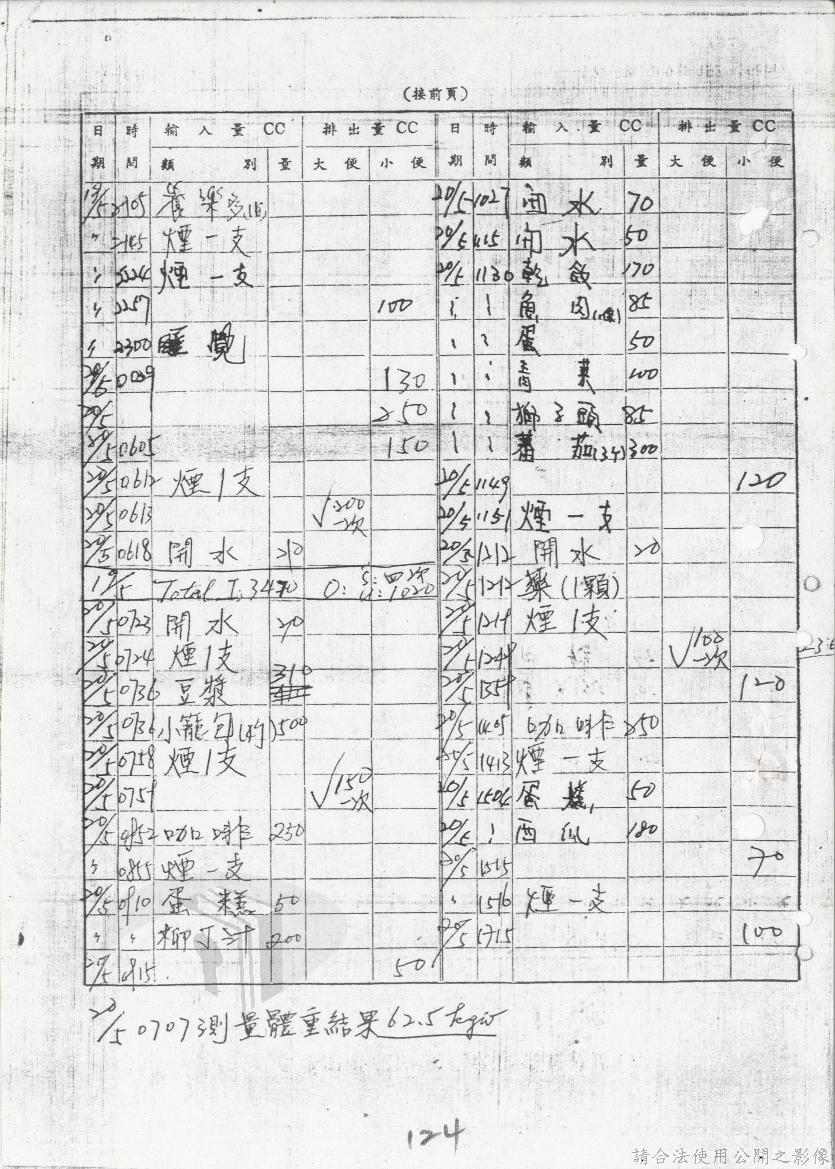 (接前頁)
日期 時間 輸入量CC 類別 量 排出量CC 大便 小便
日期 時間 輸入量CC 類別 量 排出量CC 大便 小便
19/5 2105 養樂多
〃 2145 煙一支
〃 2224 煙一支
〃 2257 100
〃 2300 睡覺
20/5 0009 130
20/5 250
20/5 0605 150
20/5 0612 煙1支
20/5 0613 √200 一次
20/5 0618 開水 20
19/5 Total I: 3470 O: S: 四次 U: 1020
20/5 0723 開水 20
20/5 0724 煙1支
20/5 0736 豆漿 310
20/5 0736 小籠包 500
20/5 0758 煙1支
20/5 0759 √150 一次
20/5 0852 咖啡 250
〃 0855 煙一支
20/5 0910 蛋糕 50
〃 〃 柳丁汁 200
20/5 0915 50
20/5 1027 開水 70
20/5 1115 開水 50
20/5 1130 乾飯 170
魚肉 85
蛋 50
青菜 100
獅子頭 85
蕃茄 300
20/5 1149 120
20/5 1151 煙一支
20/5 1212 開水 20
20/5 1212 藥(1顆)
20/5 1214 煙1支
20/5 1249 √100 一次
20/5 1359 120
20/5 1405 咖啡 250
20/5 1413 煙一支
20/5 1504 蛋糕 50
20/5 西瓜 180
20/5 1515 70
〃 1516 煙一支
20/5 1715 100
20/5 0707測量體重結果62.5 kgw
124
請合法使用公開之影像